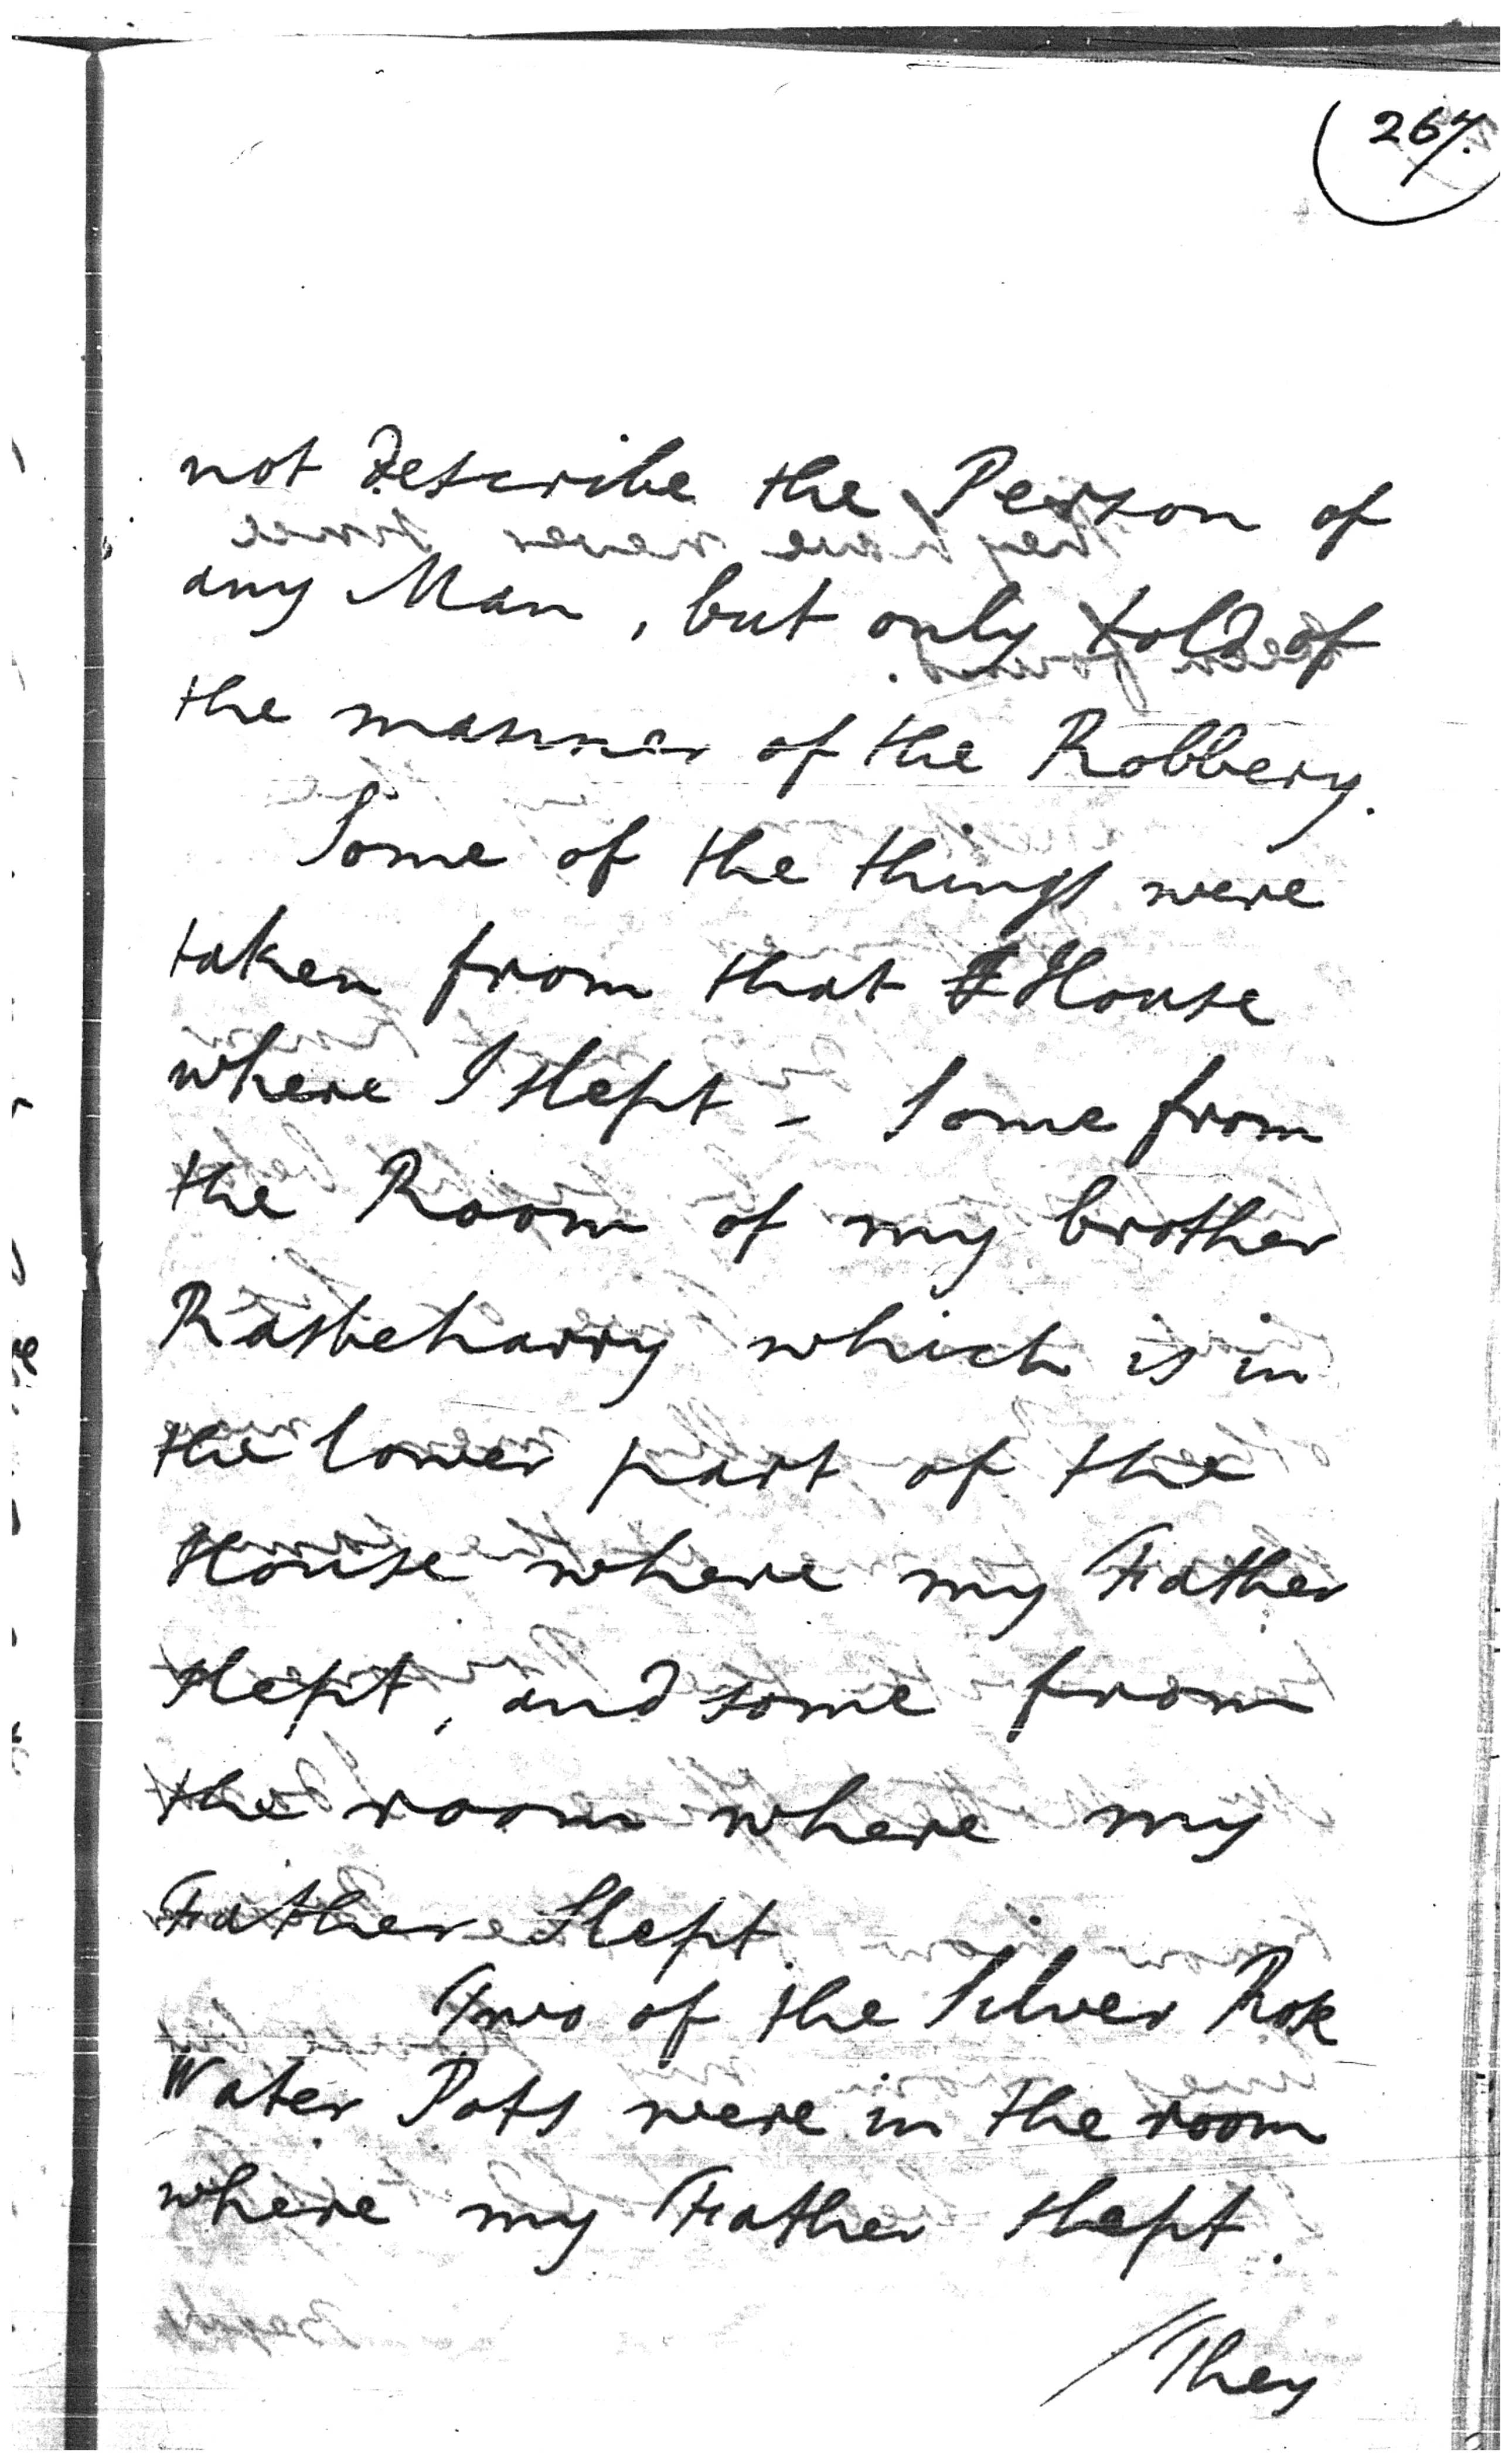 264.
not describe the Person of
any Man, but only told of
the manner of the Robbery.
Some of the things were
taken from that House
where I slept - Some from
the Room of my brother
Rasbeharry which is in
the lower part of the
House where my Father
slept, and some from
the room where my
Father Slept.
Two of the Silver Rok
Water Pots were in the room
where my Father slept.
/They